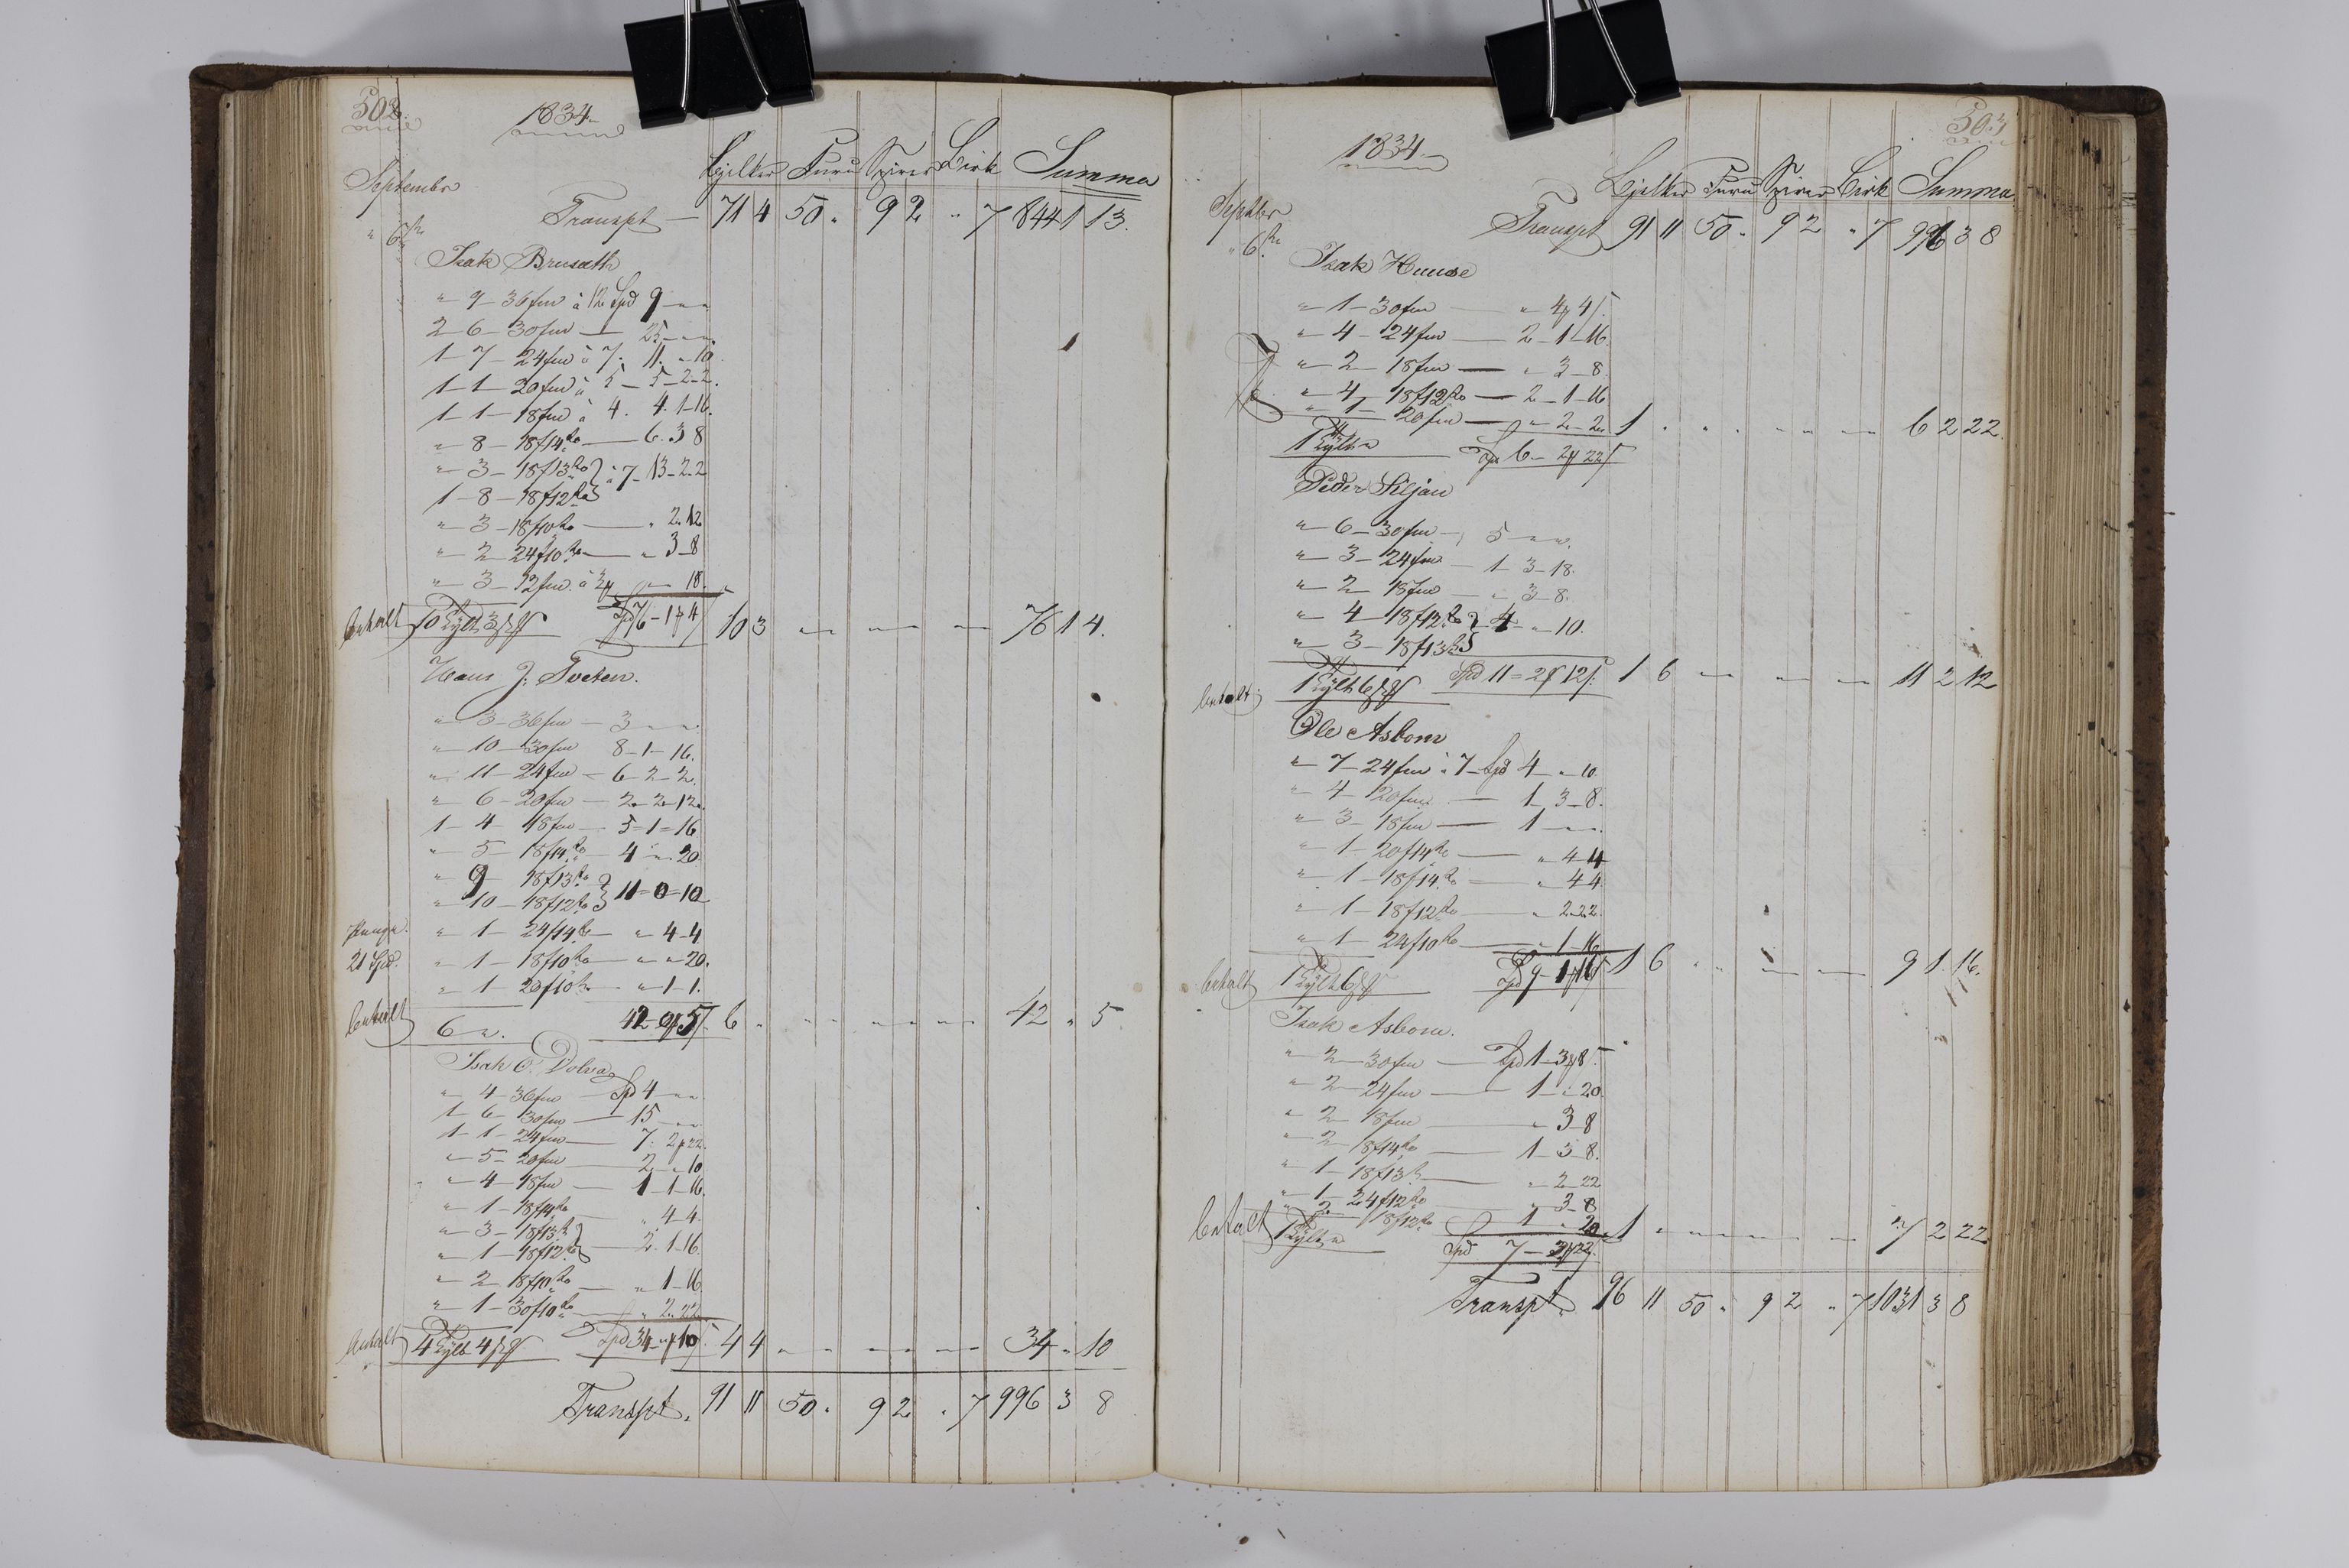 502.
1834.
Septembr
Bjelker Furu Spirer Birk Summa
Transpt — 71 4 50 „ 9 2 „ 7 844 1 13.
„ 6te
Isak Brusath
„ 9 – 36fm à 12 Spd 9 „ „
2 – 6 – 30fm — 25 „ „
1 – 7 – 24fm à 7. 11. „ 10.
1 – 1 – 20fm à 5 – 5 – 2 – 2.
1 – 1 – 18fm à 4. 4. 1 – 16.
„ 8 – 18f14to — 6. 3 8
„ 3 – 18f13to } à 7 – 13 – 2 – 2
1 – 8 – 18f12to
„ 3 – 18f10to — „ 2. 12
„ 2 – 24f10to — „ 3 – 8
„ 3 – 12fm à „ 18.
betalt 10 Tylt 3 Spd 76 – 1 4 10 3 „ „ „ „ „ „ 76 1 4.
Hans J. Tveten.
„ 3 – 36fm – 3 „ „
„ 10 – 30fm 8 – 1 – 16.
„ 11 – 24fm – 6 – 2 – 2.
„ 6 – 20fm – 2 – 2 – 12.
1 – 4 – 18fm – 5 – 1 – 16
„ 5 – 18f14to – 4 „ 20
„ 9 – 18f13to } 11 – 0 – 10
„ 10 – 18f12to
„ 1 – 24f14to — „ 4 – 4
21 Spd. „ 1 – 18f10to — „ „ 20.
„ 1 – 20f10to — „ 1 – 1.
betalt 6 „ 42 – 0 5 6 „ „ „ „ „ „ „ 42 „ 5
Isak O. Dolva
„ 4 – 36fm Spd 4 „ „
1 – 6 – 30fm — 15 „ „
1 – 1 – 24fm — 7. 2 22
„ 5 – 20fm — 2 „ 10
„ 4 – 18fm — 1 – 1 – 16.
„ 1 – 18f14to — „ 4 4.
„ 3 – 18f13to } 2. 1 – 16.
„ 1 – 18f12to
„ 2 – 18f10to — „ 1 – 16
„ 1 – 30f10to — „ 2. 22
betalt 4 Tylt 4 Spd 34 „ 10 4 4 „ „ „ „ „ „ 34 „ 10
Transpt. 91 11 50 „ 9 2 „ 7 996 3 8
503
1834.
Septbr
Bjelker Furu Spirer Birk Summa
Transpt 91 11 50 „ 9 2 „ 7 996 3 8
„ 6te
Isak Huuse
„ 1 – 30fm — „ 4 4
„ 4 – 24fm — 2 – 1 – 16.
„ 2 – 18fm — „ 3 – 8.
„ 4 – 18f12to — 2 – 1 – 16
„ 1 – 20fm — „ 2 – 2.
1 Tylt „ Spd 6 – 2 22 1 „ „ „ „ „ „ „ 6 2 22.
Peder Siljan
„ 6 – 30fm – 5 „ „
„ 3 – 24fm – 1 3 – 18.
„ 2 – 18fm — „ 3 – 8.
„ 4 – 18f12to } 4 „ 10.
„ 3 – 18f13to
betalt 1 Tylt 6 Spd 11 – 2 12 1 6 „ „ „ „ „ „ 11 2 12
Ole Asbom
„ 7 – 24fm à 7 – Spd 4 „ 10
„ 4 – 20fm — 1 – 3 – 8.
„ 3 – 18fm — 1 „ „
„ 1 – 20f14to — „ 4 4
„ 1 – 18f14to — „ 4 4
„ 1 – 18f12to — „ 2 – 22.
„ 1 – 24f10to — „ 1 – 16
betalt 1 Tylt 6 Spd 9 – 1 16 1 6 „ „ „ „ „ „ 9 1 16.
Isak Asbom.
„ 2 – 30fm — Spd 1 – 3 8
„ 2 – 24fm — 1 „ 20.
„ 2 – 18fm — „ 3 – 8
„ 2 – 18f14to — 1 – 3 – 8.
„ 1 – 18f13to — „ 2 – 22
„ 1 – 24f12to — „ 3 – 8
„ 2 – 18f12to — 1 „ 20
betalt 1 Tylt „ Spd 7 – 2 22 1 „ „ „ „ „ „ „ 7 2 22
Transpt. 96 11 50 „ 9 2 „ 7 1031 3 8